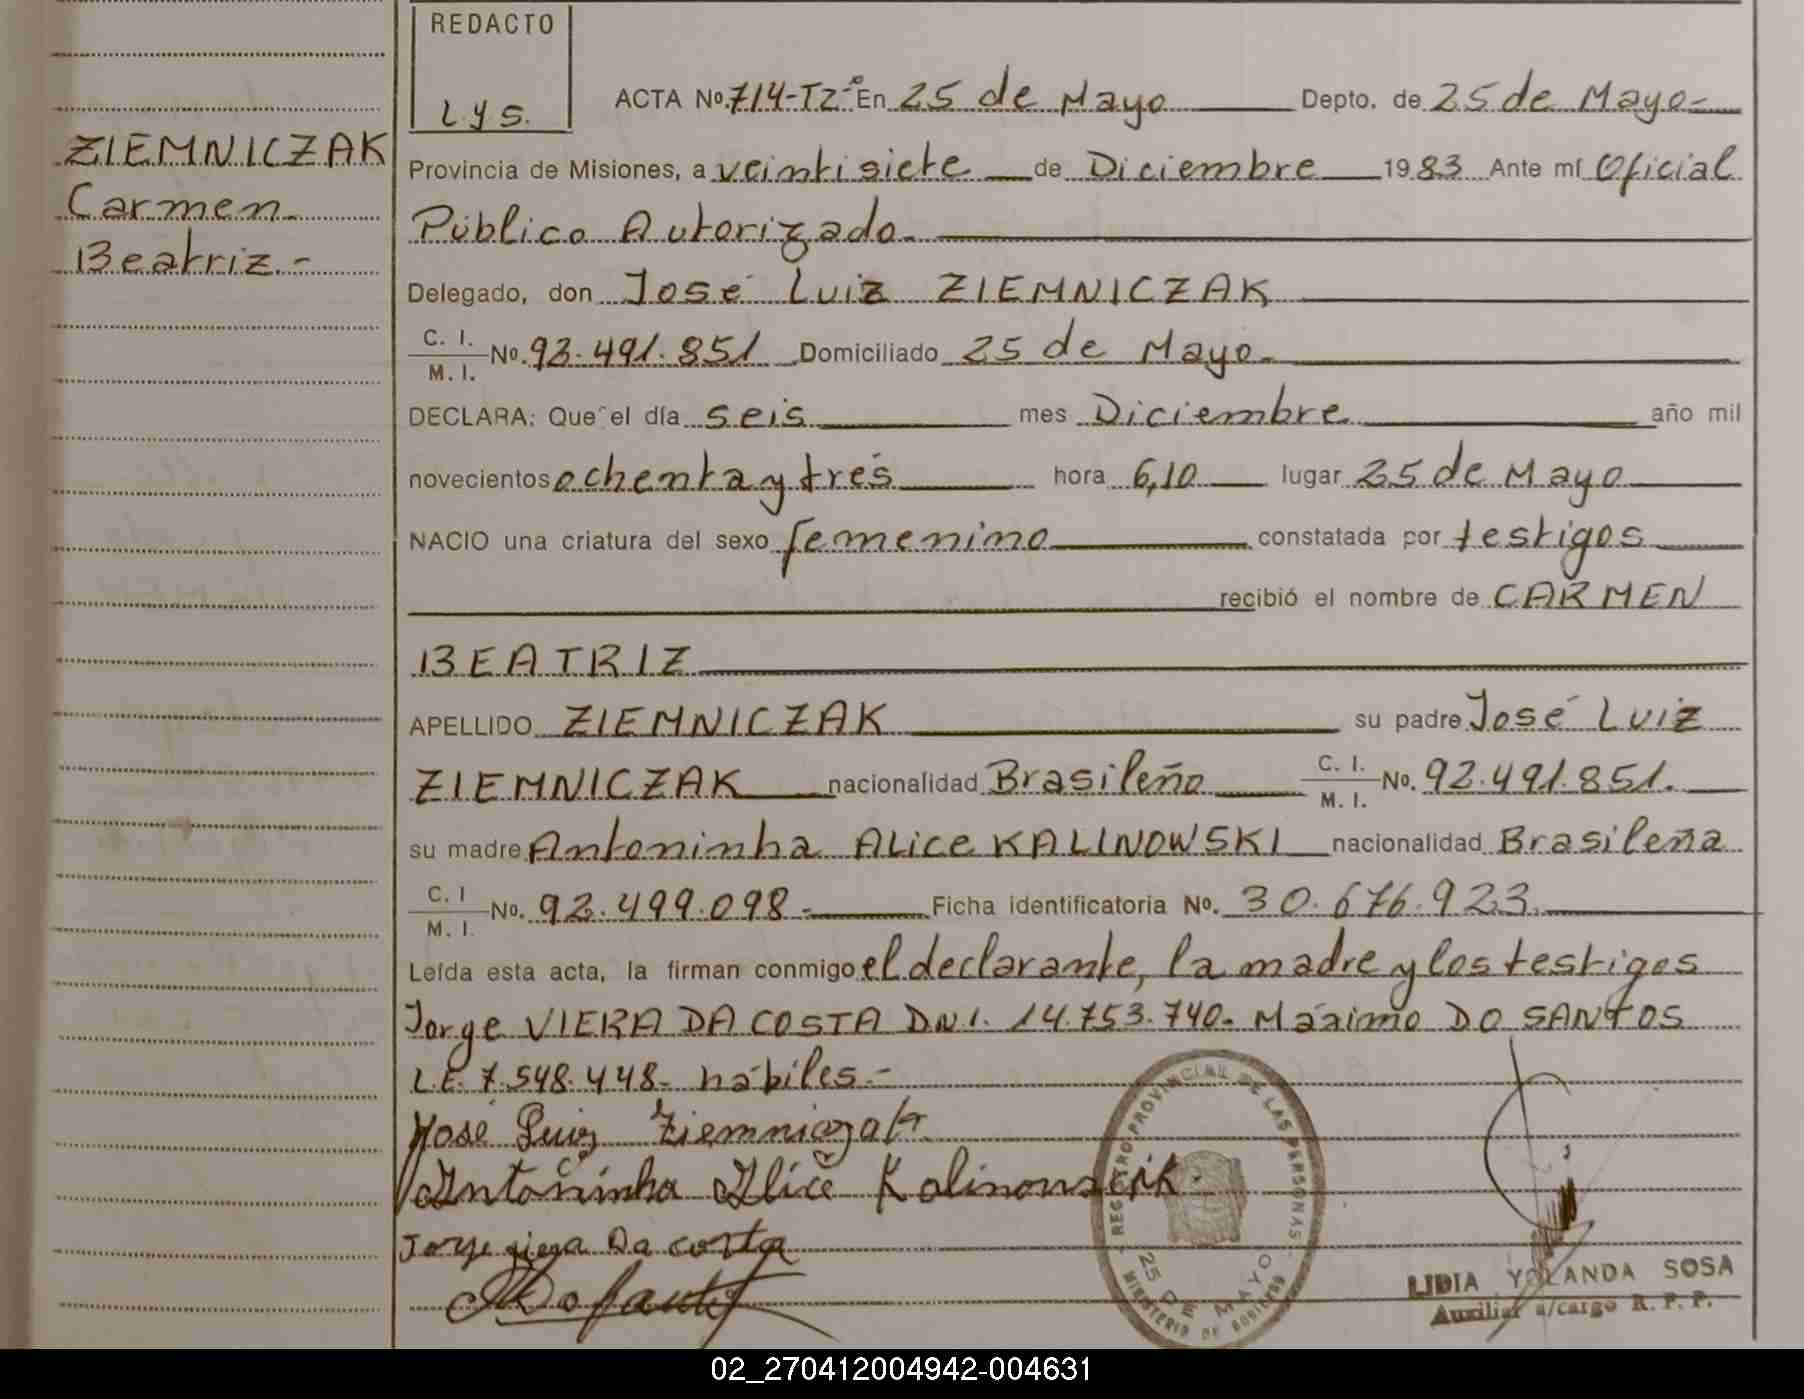 REDACTO
L.y S.
ACTA No. 714-T2º En 25 de Mayo Depto. de 25 de Mayo-
ZIEMNICZAK
Carmen
Beatriz.-
Provincia de Misiones, a veintisiete de Diciembre 1983 Ante mí Oficial
Público Autorizado-
Delegado, don José Luiz ZIEMNICZAK
C. I.
M. I.
No. 92.491.851 Domiciliado 25 de Mayo-
DECLARA: Que el día seis mes Diciembre año mil
novecientos ochenta y trés hora 6,10 lugar 25 de Mayo
NACIO una criatura del sexo femenino constatada por testigos
recibió el nombre de CARMEN
BEATRIZ
APELLIDO ZIEMNICZAK su padre José Luiz
ZIEMNICZAK nacionalidad Brasileño C. I. M. I. No. 92.491.851.
su madre Antoninha ALICE KALINOWSKI nacionalidad Brasileña
C. I M. I. No. 92.499.098- Ficha identificatoria No. 30.676.923
Leída esta acta, la firman conmigo el declarante, la madre y los testigos
Jorge VIERA DA COSTA DNI. 14.753.740- Máximo DO SANTOS
L.E. 7.548.448- hábiles.-
José Luiz Ziemniczak
Antoninha Alice Kalinowski
Jorge Da costa
REGISTRO PROVINCIAL DE LAS PERSONAS
25 DE MAYO
MINISTERIO DE GOBIERNO
LIDIA YOLANDA SOSA
Auxiliar a/cargo R. P. P.
02_270412004942-004631